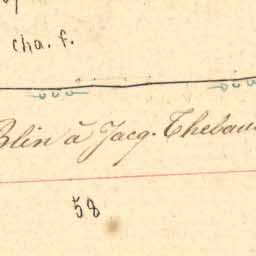 cha. f.
Blin à Jacq. Thebau
58